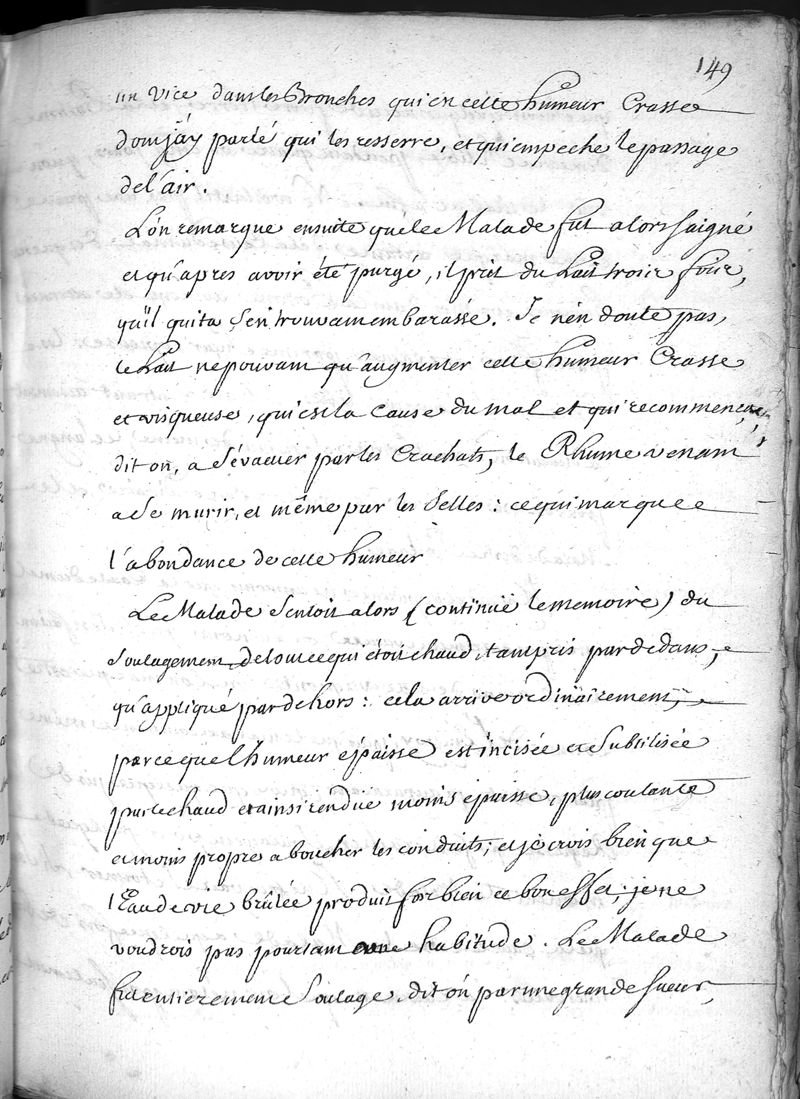 149
un vice dans les Bronches qui en cette humeur Crasse
dont j'ay parlé qui les resserre, et qui empeche le passage
de l'air.
L'on remarque ensuite que le Malade fut alors saigné
et qu'apres avoir été purgé, il prit du Lait trois fois,
qu'il quita s'en trouvant embarassé. Je n'en doute pas,
le Lait ne pouvant qu'augmenter cette humeur Crasse
et visqueuse, qui est la Cause du mal et qui recommença,
dit on, a s'évacuer par les Crachats, le Rhume venant
a se murir, et même par les selles: ce qui marque
l'abondance de cette humeur
Le Malade sentoit alors (continuë le memoire) du
soulagement de tout ce qui étoit chaud, tant pris par dedans,
qu'appliqué par dehors: cela arrive ordinairement,
parce que l'humeur épaisse est incisée et subtilisée
par le chaud et ainsi renduë moins épaisse, plus coulante
et moins propre a boucher les conduits; et je crois bien que
l'Eau de vie brûlée produit fort bien ce bon effet; je ne
voudrois pas pourtant une habitude. Le Malade
fut entierement soulagé, dit on, par une grande sueur,